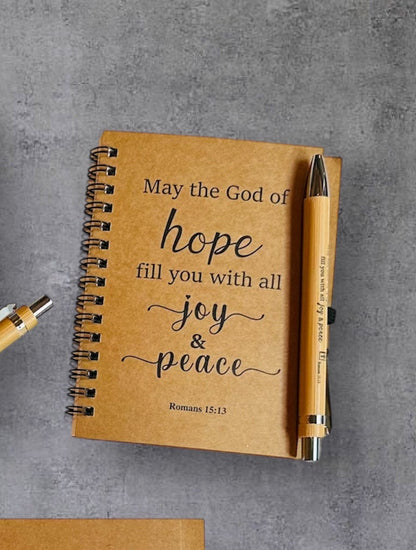 May the God of
hope
fill you with all
joy
&
peace
Romans 15:13
fill you with all joy & peace